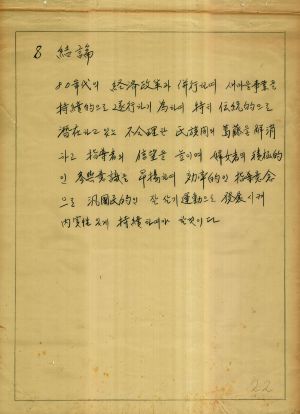 8 結論
80年代의 經済政策과 併行하며 새마을事業을
持續的으로 遂行하기 爲하여 特히 伝統的으로
潜在하고 있는 不合理한 民族間의 葛藤을 解消
하고 指導者의 信望을 높이며 婦女者의 積極的
인 参與意識을 平揚하며 効率的인 指導理念
으로 汎國民的인 잘 살기運動으로 發展시켜
内実性 있게 持續하여야 할것이다
22